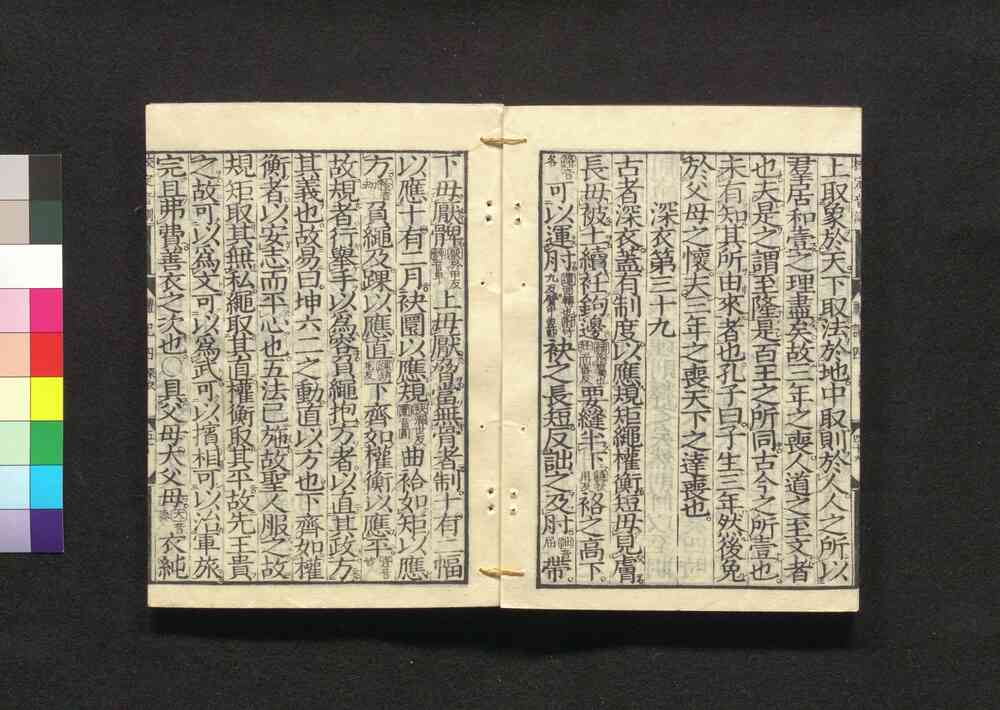 上取象於天下取法於地中取則於人人之所以
羣居和壹之理盡矣故三年之喪人道之至文者
也夫是之謂至隆是百王之所同古今之所壹也
未有知其所由來者也孔子曰子生三年然後免
於父母之懷夫三年之喪天下之達喪也
深衣第三十九
古者深衣蓋有制度以應規矩繩權衡短毋見膚
長毋被土續衽鉤邊要縫半下袼之高下
可以運肘袂之長短反詘之及肘帶
下毋厭髀上毋厭脅當無骨者制十有二幅
以應十有二月袂圜以應規曲袷如矩以應
方負繩及踝以應直下齊如權衡以應平
故規者行舉手以爲容負繩抱方者以直其政方
其義也故易曰坤六二之動直以方也下齊如權
衡者以安志而平心也五法已施故聖人服之故
規矩取其無私繩取其直權衡取其平故先王貴
之故可以爲文可以爲武可以擯相可以治軍旅
完且弗費善衣之次也○具父母大父母衣純